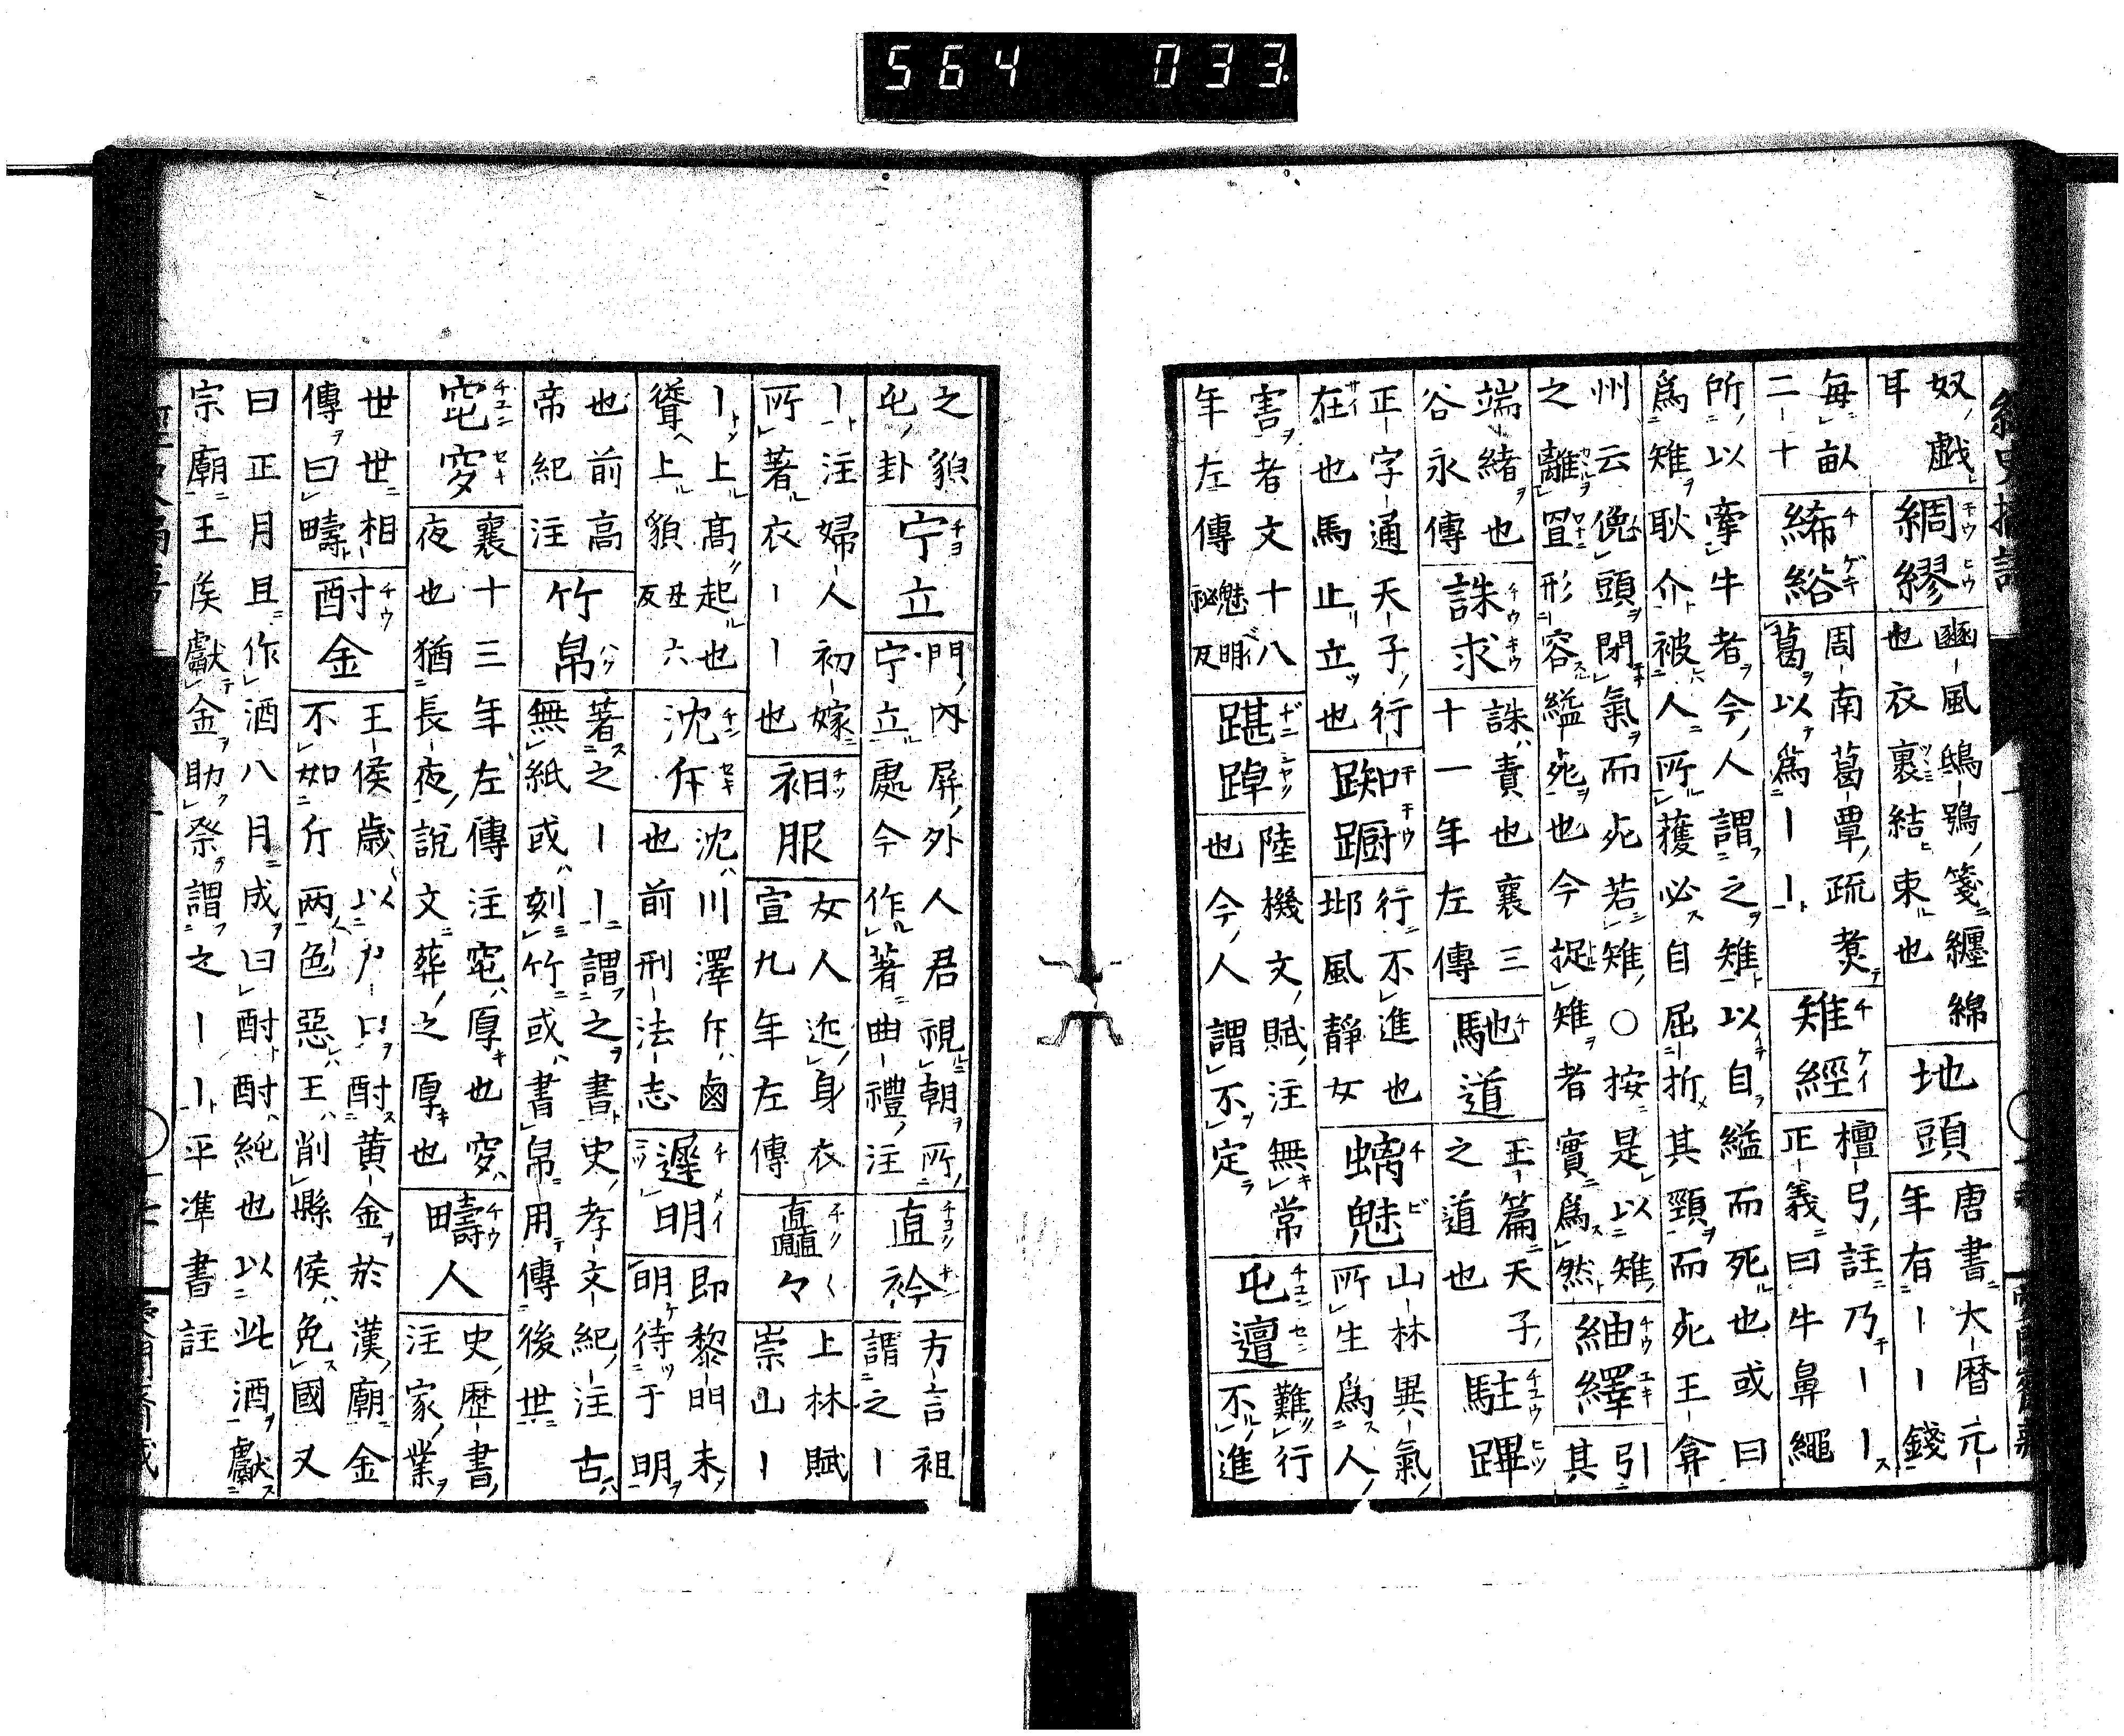 564 033
奴戲
耳
綢繆
豳風鴟鴞箋纏綿
也衣裏結束也
地頭
唐書大曆元
年有｜｜錢
每畝
二十
絺綌
周南葛覃疏煑
葛以爲｜｜
雉經
檀弓註乃｜｜
正義曰牛鼻繩
所以牽牛者今人謂之雉以自縊而死也或曰
爲雉耿介被人所獲必自屈折其頸而死王弇
州云俛頭閉氣而死若雉○按是以雉
之離罝形容縊死也今捉雉者實爲然
紬繹
引
其
端緒也
谷永傳
誅求
誅責也襄三
十一年左傳
馳道
玉篇天子
之道也
駐蹕
正字通天子行
在也馬止立也
踟蹰
行不進也
邶風靜女
螭魅
山林異氣
所生爲人
害者文十八
年左傳
魅明
祕反
踸踔
陸機文賦注無常
也今人謂不定
屯邅
難行
不進
之貌
屯卦
宁立
門內屏外人君視朝所
宁立處今作著曲禮注
直衿
方言祖
謂之｜
｜注婦人初嫁
所著衣｜｜也
衵服
女人近身衣
宣九年左傳
矗々
上林賦
崇山｜
｜上高起也
聳上貌
丑六
反
沈斥
沈川澤斥鹵
也前刑法志
遲明
即黎明未
明待于明
也前高
帝紀注
竹帛
著之｜｜謂之書史孝文紀注古
無紙或刻竹或書帛用傳後世
窀穸
襄十三年左傳注窀厚也穸
夜也猶長夜說文葬之厚也
疇人
史歷書
注家業
世世相
傳曰疇
酎金
王侯歲以戶口酎黃金於漢廟金
不如斤兩色惡王削縣侯免國又
曰正月旦作酒八月成曰酎酎純也以此酒獻
宗廟王矦獻金助祭謂之｜｜平準書註